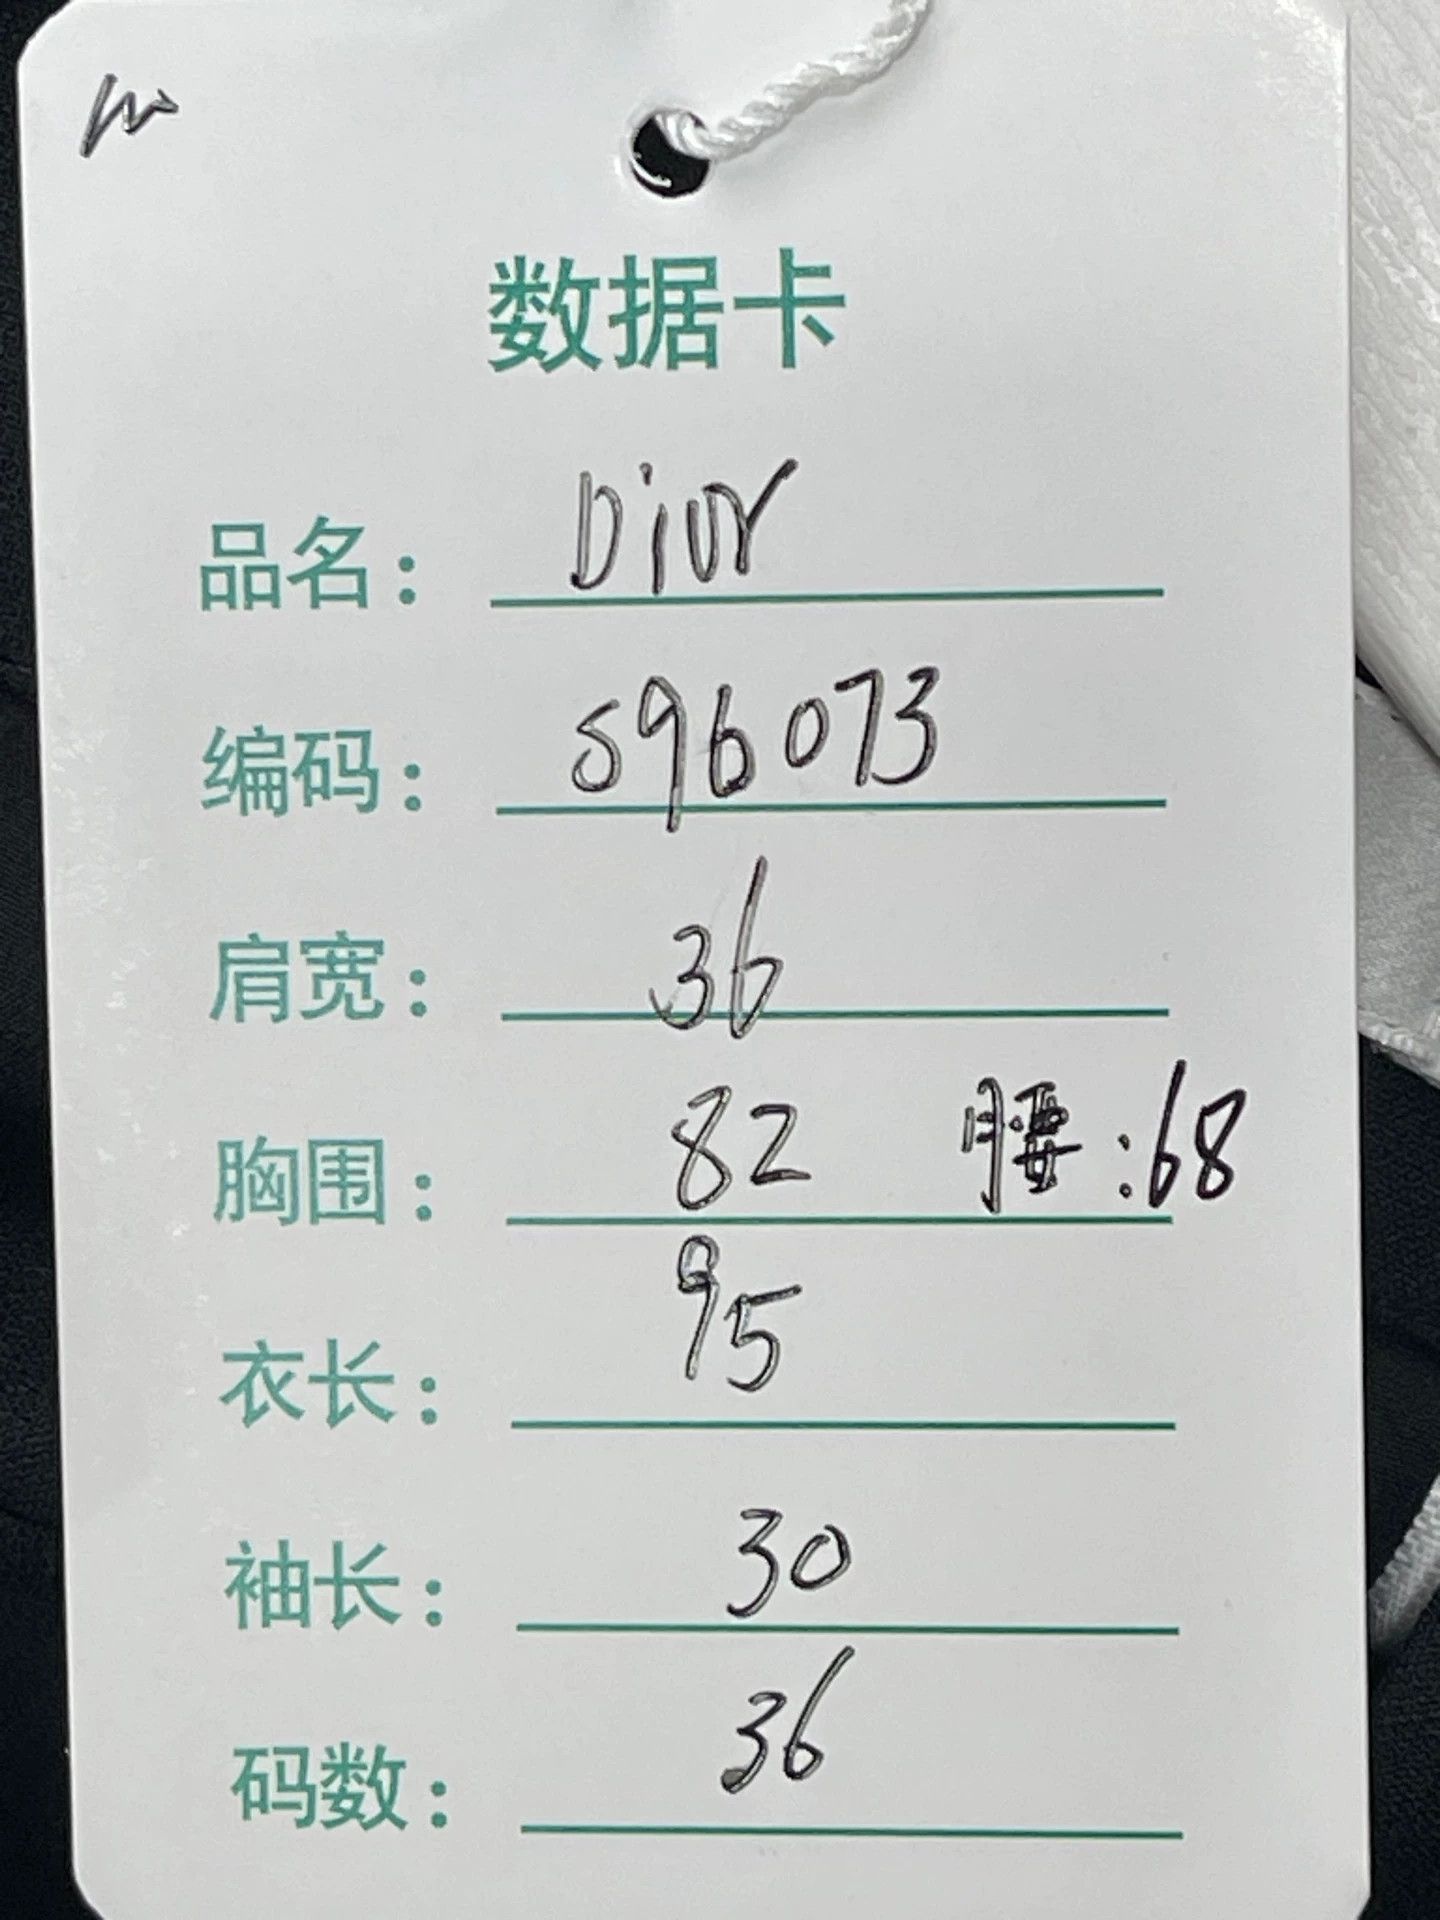 数据卡
品名: Dior
编码: S96073
肩宽: 36
胸围: 82 腰:68
衣长: 95
袖长: 30
码数: 36